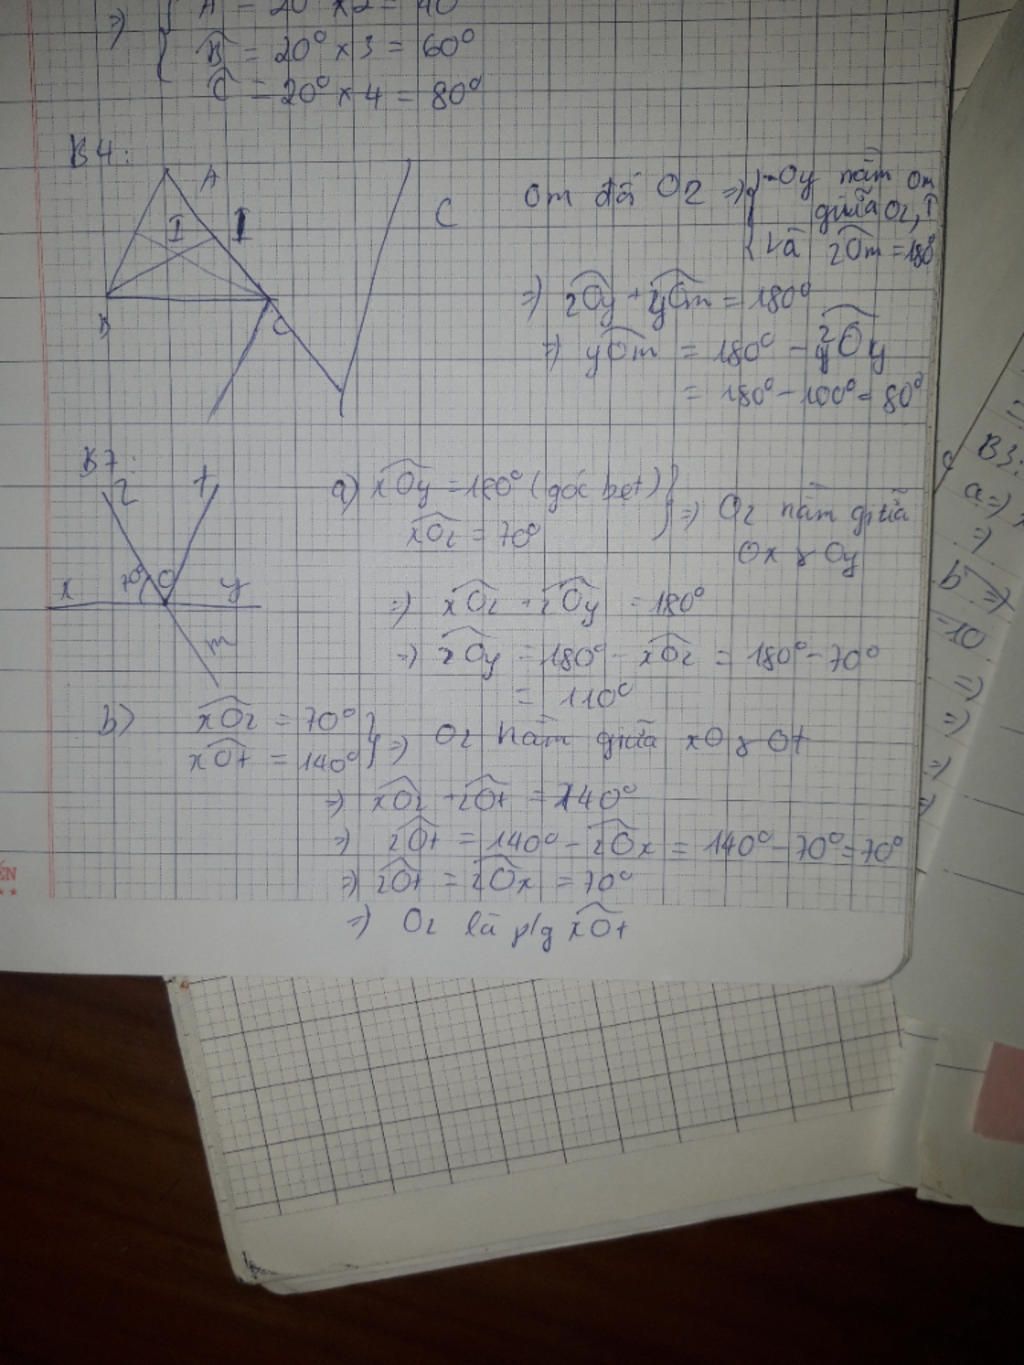 => { Â = 20 x 2 = 40
B̂ = 20° x 3 = 60°
Ĉ = 20° x 4 = 80°
B4:
A
I I
B
C
C
Om đối Oz => { Oy nằm
giữa Oz, Om
và zOm = 180°
=> zOy + yOm = 180°
=> yOm = 180° - zOy
= 180° - 100° = 80°
B7:
z t
70° O
x y
m
a) xOy = 180° (góc bẹt) }
xOz = 70° => Oz nằm giữa
Ox & Oy
=> xOz + zOy = 180°
=> zOy = 180° - xOz = 180° - 70°
= 110°
b) xOz = 70° }
xOt = 140° => Oz nằm giữa xO & Ot
=> xOz + zOt = 140°
=> zOt = 140° - zOx = 140° - 70° = 70°
=> zOt = zOx = 70°
=> Oz là p/g xOt
B3:
a =>
=>
b =>
-10
=>
=>
=>
=>
ÉN